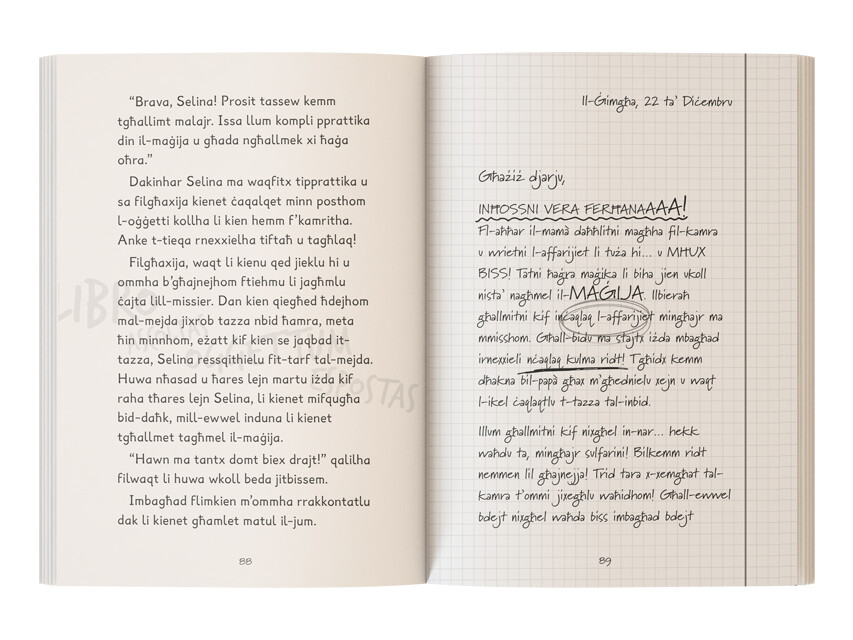 “Brava, Selina! Prosit tassew kemm
tgħallimt malajr. Issa llum kompli pprattika
din il-maġija u għada ngħallmek xi ħaġa
oħra.”
Dakinhar Selina ma waqfitx tipprattika u
sa filgħaxija kienet ċaqalqet minn posthom
l-oġġetti kollha li kien hemm f’kamritha.
Anke t-tieqa rnexxielha tiftaħ u tagħlaq!
Filgħaxija, waqt li kienu qed jieklu hi u
ommha b’għajnejhom ftiehmu li jagħmlu
ċajta lill-missier. Dan kien qiegħed ħdejhom
mal-mejda jixrob tazza nbid ħamra, meta
ħin minnhom, eżatt kif kien se jaqbad it-
tazza, Selina ressqithielu fit-tarf tal-mejda.
Huwa nħasad u ħares lejn martu iżda kif
raha tħares lejn Selina, li kienet mifqugħa
bid-daħk, mill-ewwel induna li kienet
tgħallmet tagħmel il-maġija.
“Hawn ma tantx domt biex drajt!” qalilha
filwaqt li huwa wkoll beda jitbissem.
Imbagħad flimkien m’ommha rrakkontatlu
dak li kienet għamlet matul il-jum.
88
Il-Ġimgħa, 22 ta’ Diċembru
Għażiż djarju,
INĦOSSNI VERA FERĦANAAAA!
Fl-aħħar il-mamà daħħlitni magħha fil-kamra
u wrietni l-affarijiet li tuża hi... u MHUX
BISS! Tatni ħaġra maġika li biha jien ukoll
nista’ nagħmel il-MAĠIJA. Ilbieraħ
għallmitni kif inċaqlaq l-affarijiet mingħajr ma
mmisshom. Għall-bidu ma stajtx iżda mbagħad
irnexxieli nċaqlaq kulma ridt! Tgħidx kemm
dħakna bil-papà għax m’għednielu xejn u waqt
l-ikel ċaqlaqtlu t-tazza tal-inbid.
Illum għallmitni kif nixgħel in-nar... hekk
waħdu ta, mingħajr sulfarini! Bilkemm ridt
nemmen lil għajnejja! Trid tara x-xemgħat tal-
kamra t’ommi jixegħlu waħidhom! Għall-ewwel
bdejt nixgħel waħda biss imbagħad bdejt
89